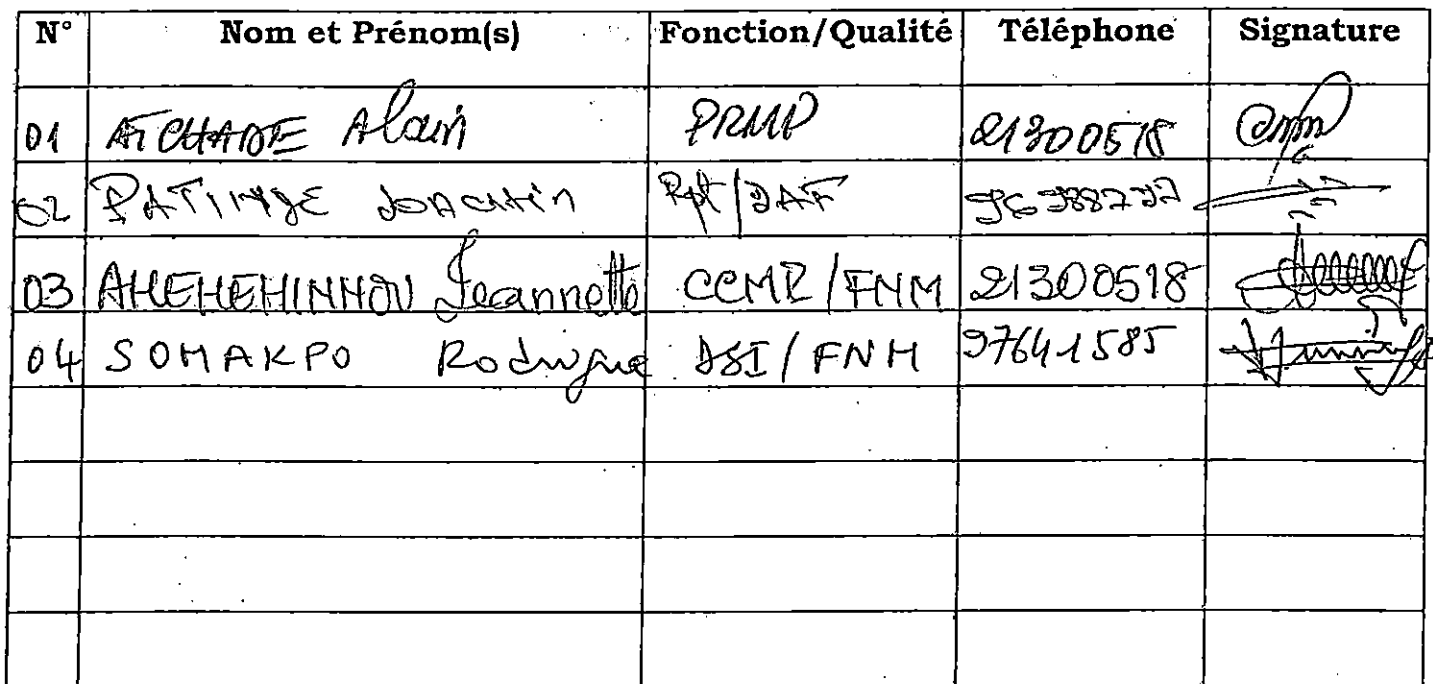 N° Nom et Prénom(s) Fonction/Qualité Téléphone Signature
01 AÏCHADE Alain PRMP 21300518
02 JOACHIN Rpt/DAF
03 AHEHEHINNOU Jeannette CCMP/FNM 21300518
04 SOMAKPO Rodrigue DSI/FNM 97641585